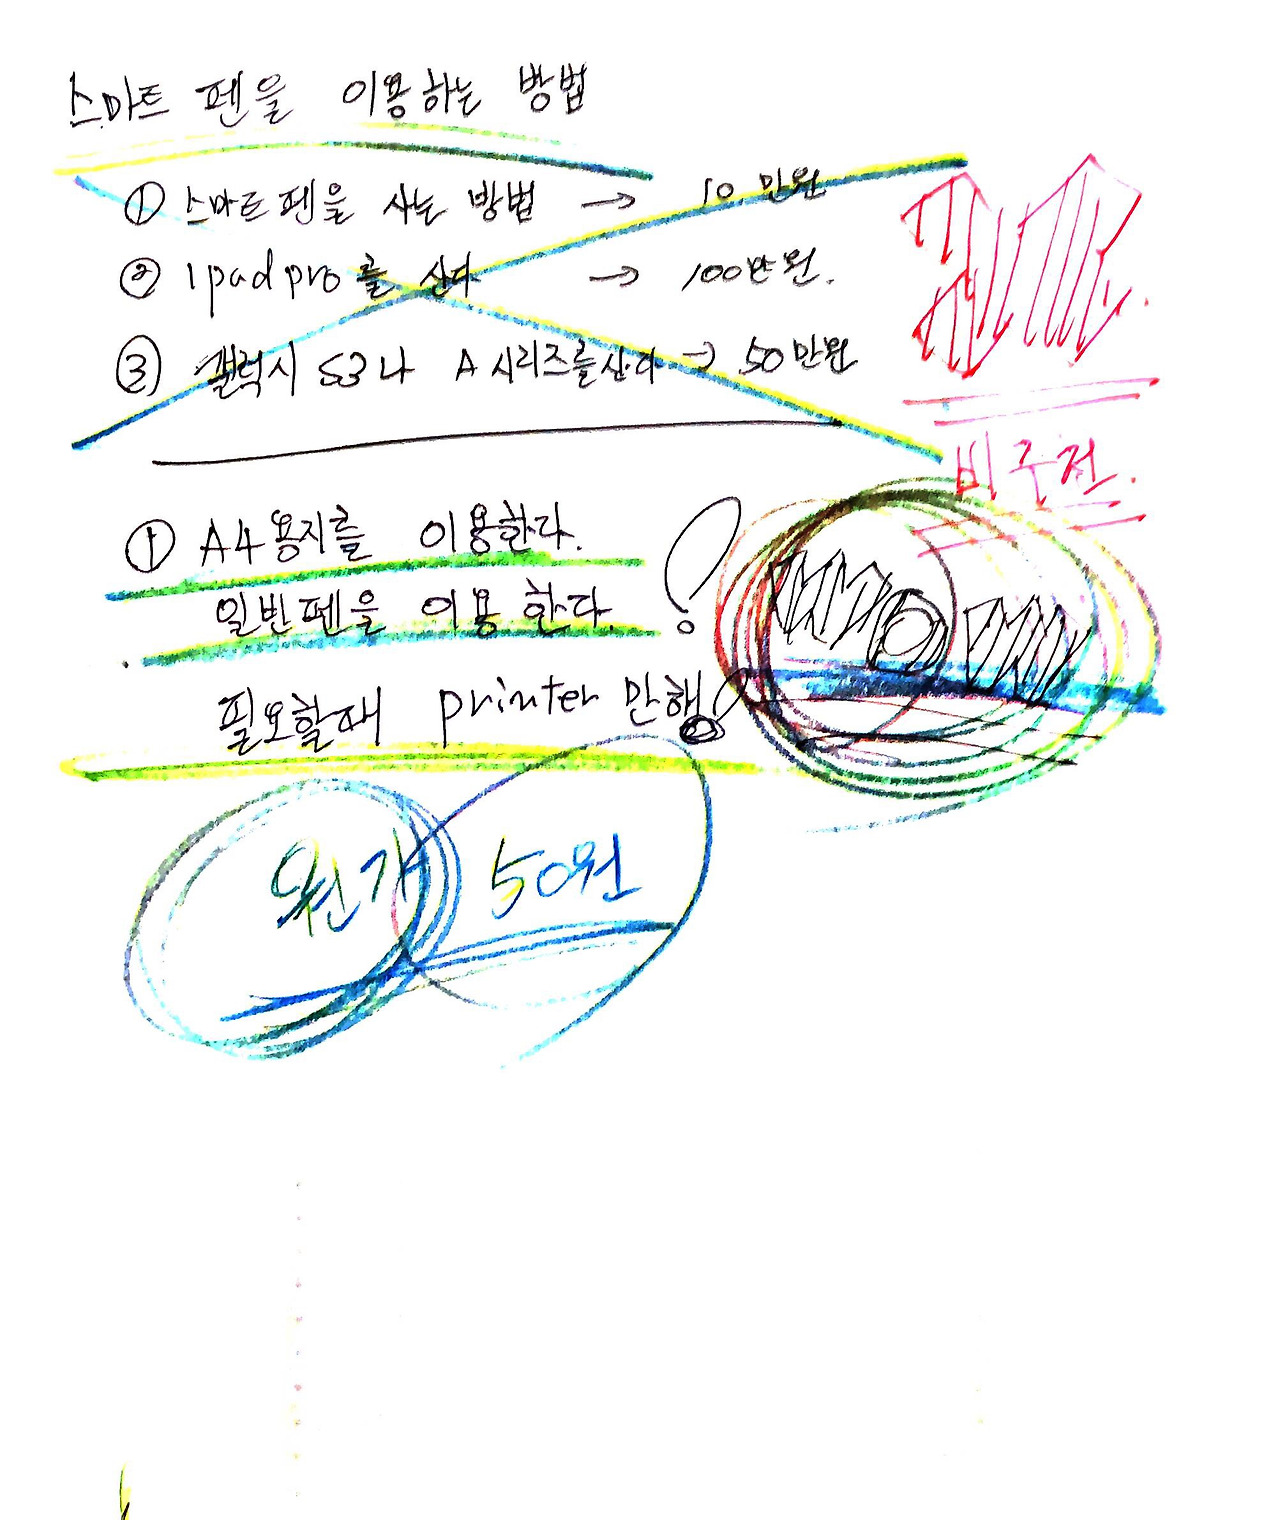 스마트 펜을 이용하는 방법
① 스마트펜을 사는 방법 → 10만원
② Ipad pro를 산다 → 100만원.
③ 갤럭시 S3나 A시리즈를 산다 → 50만원
비추천.
① A4용지를 이용한다.
일반펜을 이용한다.
필요할때 printer 만해
50원